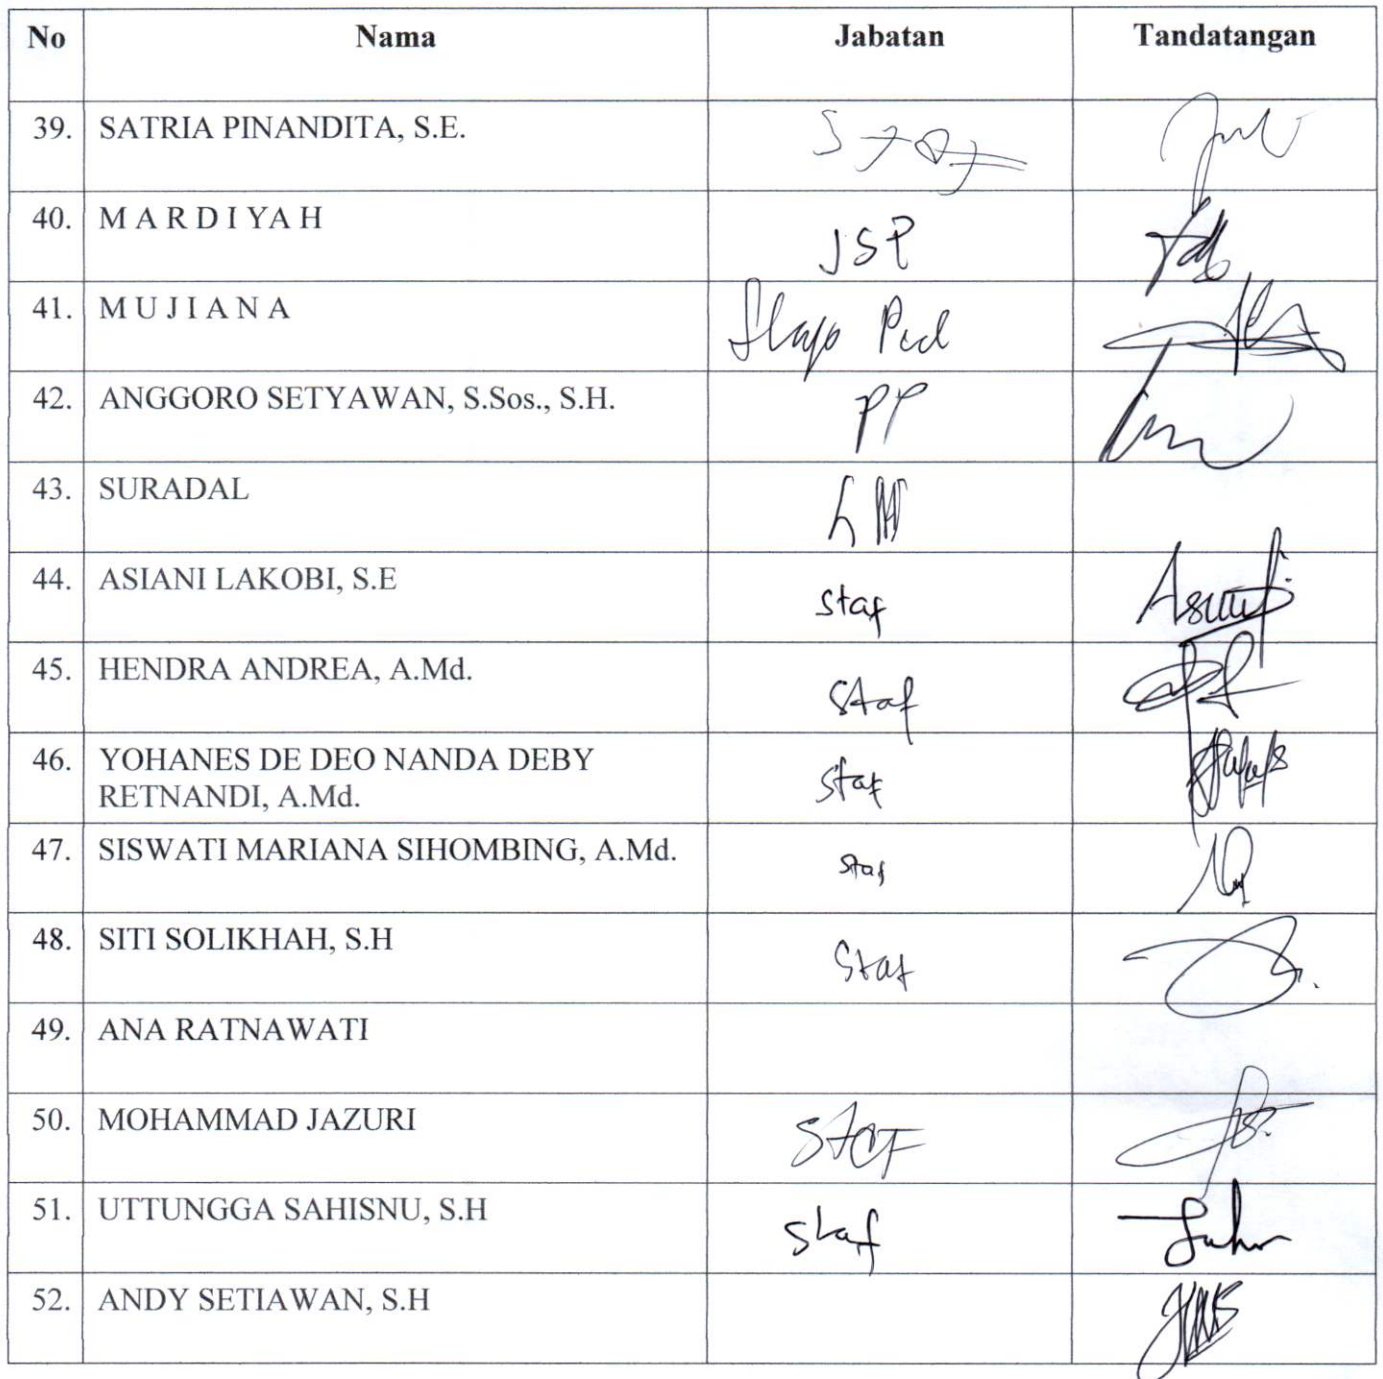 No Nama Jabatan Tandatangan
39. SATRIA PINANDITA, S.E. Staf
40. M A R D I YA H JSP
41. M U J I A N A
42. ANGGORO SETYAWAN, S.Sos., S.H. PP
43. SURADAL
44. ASIANI LAKOBI, S.E staf
45. HENDRA ANDREA, A.Md. Staf
46. YOHANES DE DEO NANDA DEBY
RETNANDI, A.Md. Staf
47. SISWATI MARIANA SIHOMBING, A.Md. Staf
48. SITI SOLIKHAH, S.H Staf
49. ANA RATNAWATI
50. MOHAMMAD JAZURI STAF
51. UTTUNGGA SAHISNU, S.H staf
52. ANDY SETIAWAN, S.H